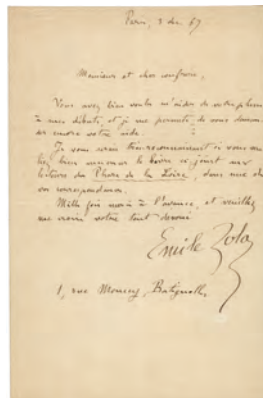 Paris, 3 dec 67
Monsieur et cher confrère,
Vous avez bien voulu m'aider de votre plume
à mes débuts, et je me permets de vous deman-
der encore votre aide.
Je vous serai très-reconnaissant si vous vou-
lez bien annoncer le livre ci-joint aux
lecteurs du Phare de la Loire, dans une de
vos correspondances.
Mille fois merci à l'avance, et veuillez
me croire votre tout dévoué
Emile Zola
1, rue Moncey, Batignolles